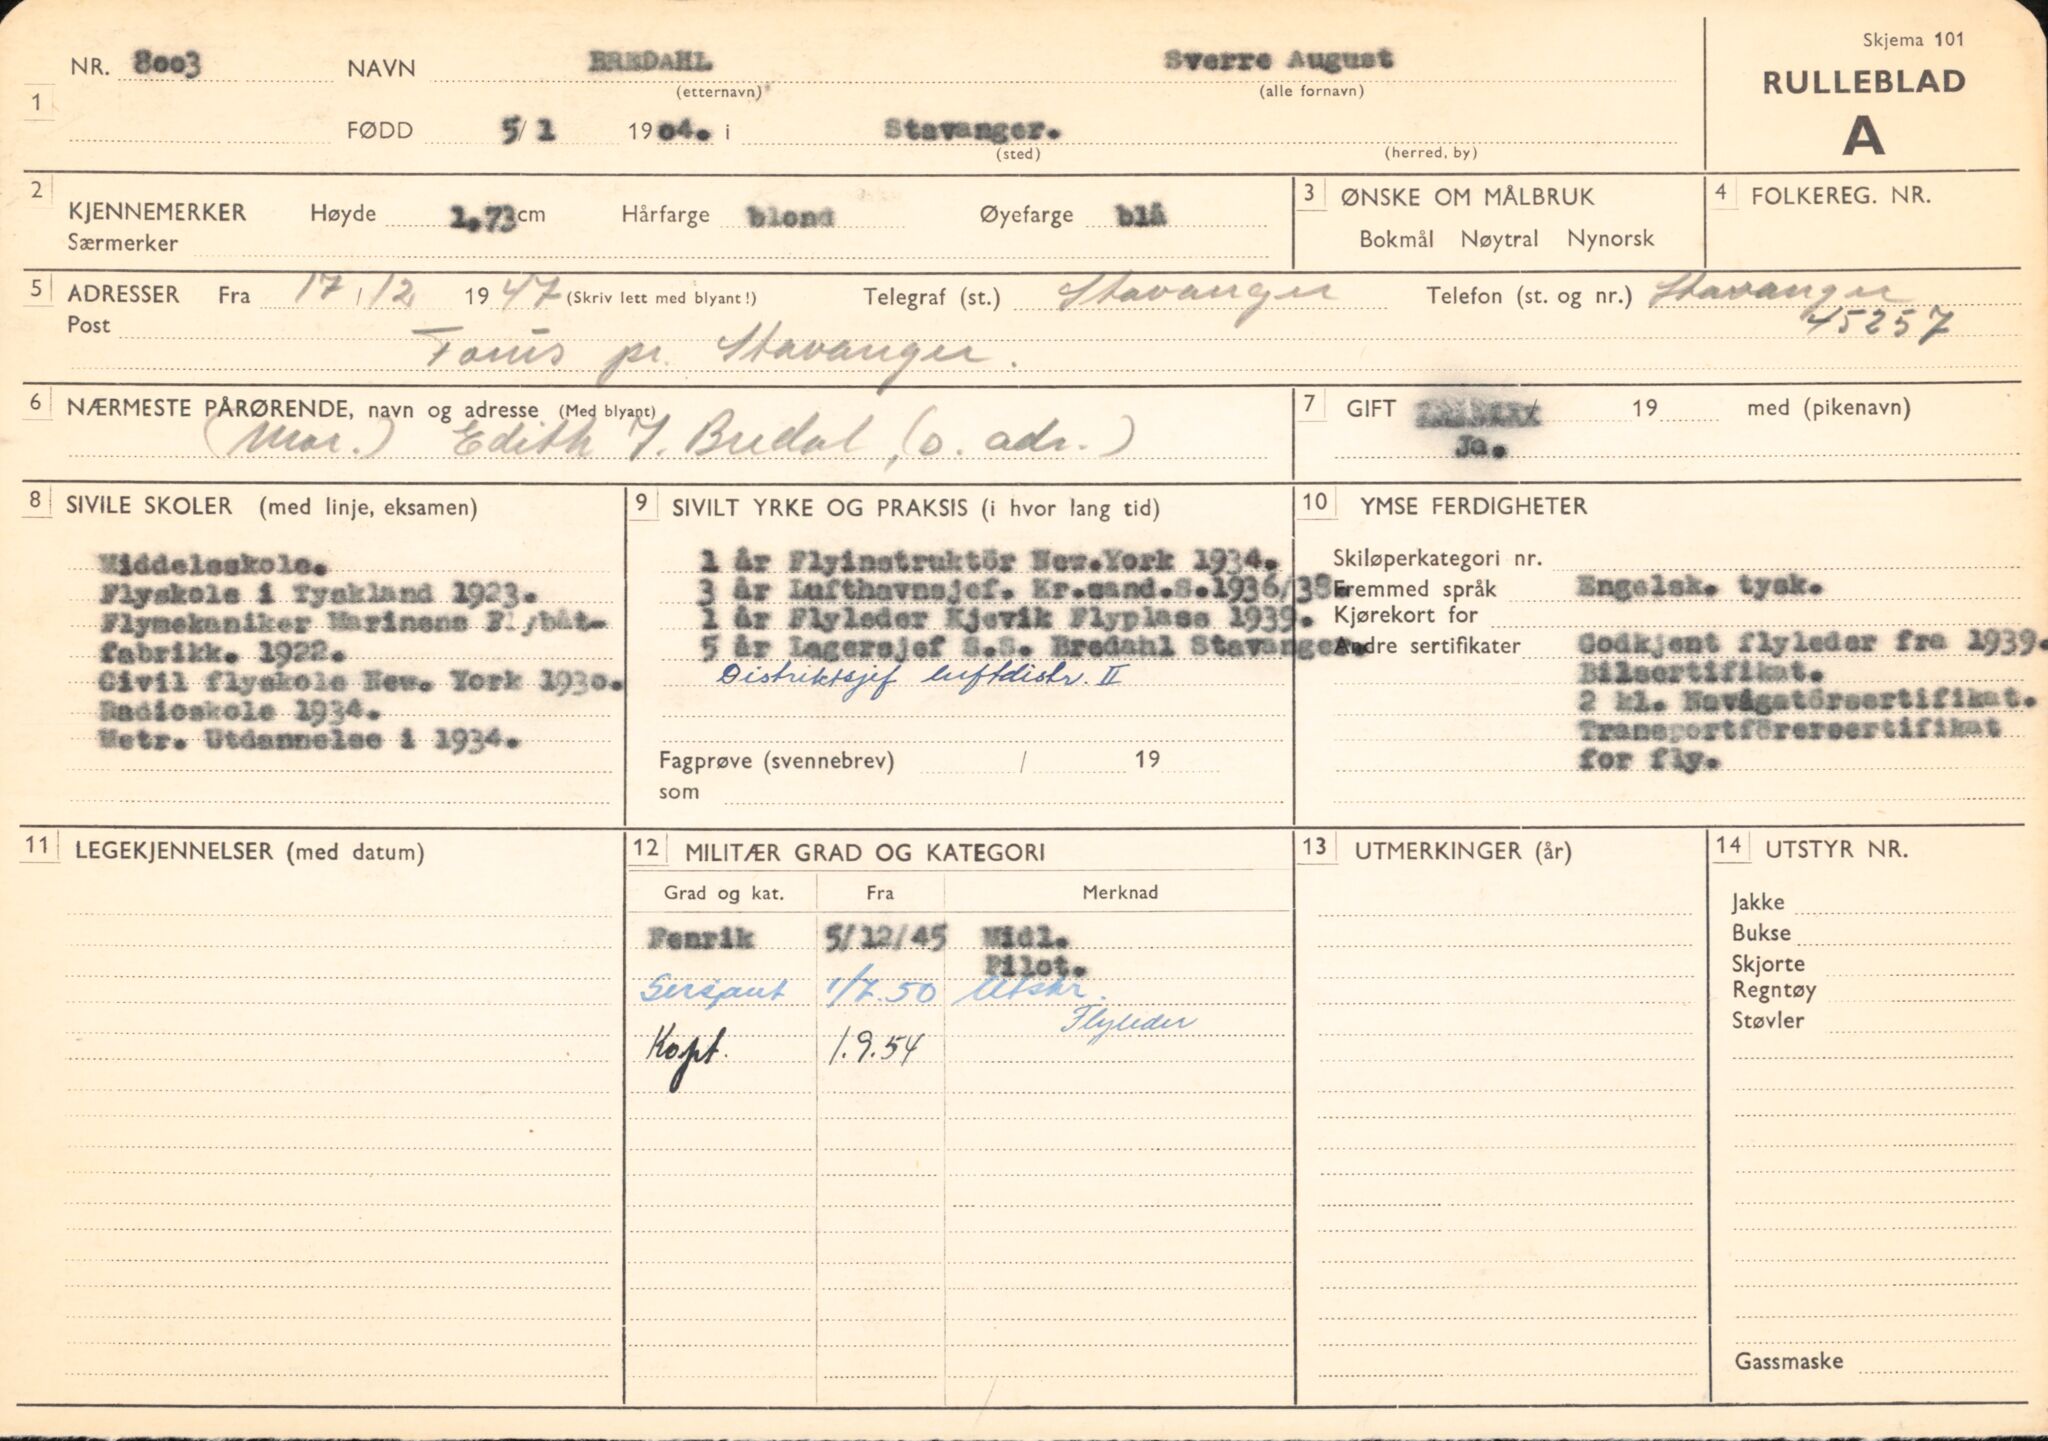 Skjema 101
RULLEBLAD
A
1 NR. 8003 NAVN BREDAHL Sverre August
(etternavn) (alle fornavn)
FØDD 5/1 1904. i Stavanger.
(sted) (herred, by)
2 KJENNEMERKER Høyde 1,73 cm Hårfarge blond Øyefarge blå
Særmerker
3 ØNSKE OM MÅLBRUK
Bokmål Nøytral Nynorsk
4 FOLKEREG. NR.
5 ADRESSER Fra 17/12 1947 (Skriv lett med blyant!) Telegraf (st.) Stavanger Telefon (st. og nr.) Stavanger
Post 45257
pr. Stavanger.
6 NÆRMESTE PÅRØRENDE, navn og adresse (Med blyant)
(Mor.) Edith J. Bredal, (o. adr.)
7 GIFT / 19 med (pikenavn)
Ja.
8 SIVILE SKOLER (med linje, eksamen)
Middelsskole.
Flyskole i Tyskland 1923.
Flymekaniker Marinens Flybåt-
fabrikk. 1922.
Civil flyskole New. York 1930.
Radioskole 1934.
Metr. Utdannelse i 1934.
9 SIVILT YRKE OG PRAKSIS (i hvor lang tid)
1 år Flyinstruktör New.York 1934.
3 år Lufthavnsjef. Kr.sand.S.1936/38.
1 år Flyleder Kjevik Flyplass 1939.
5 år Lagersjef S.S. Bredahl Stavanger.
Distriktsjef luftdistr. II
Fagprøve (svennebrev) / 19
som
10 YMSE FERDIGHETER
Skiløperkategori nr.
Fremmed språk Engelsk. tysk.
Kjørekort for
Andre sertifikater Godkjent flyleder fra 1939.
Bilsertifikat.
2 kl. Navigatörsertifikat.
Transportförersertifikat
for fly.
11 LEGEKJENNELSER (med datum)
12 MILITÆR GRAD OG KATEGORI
Grad og kat. Fra Merknad
Fenrik 5/12/45 Midl.
Pilot.
Sersjant 1/7.50 Utskr.
Flyleder
Kapt. 1.9.54
13 UTMERKINGER (år)
14 UTSTYR NR.
Jakke
Bukse
Skjorte
Regntøy
Støvler
Gassmaske